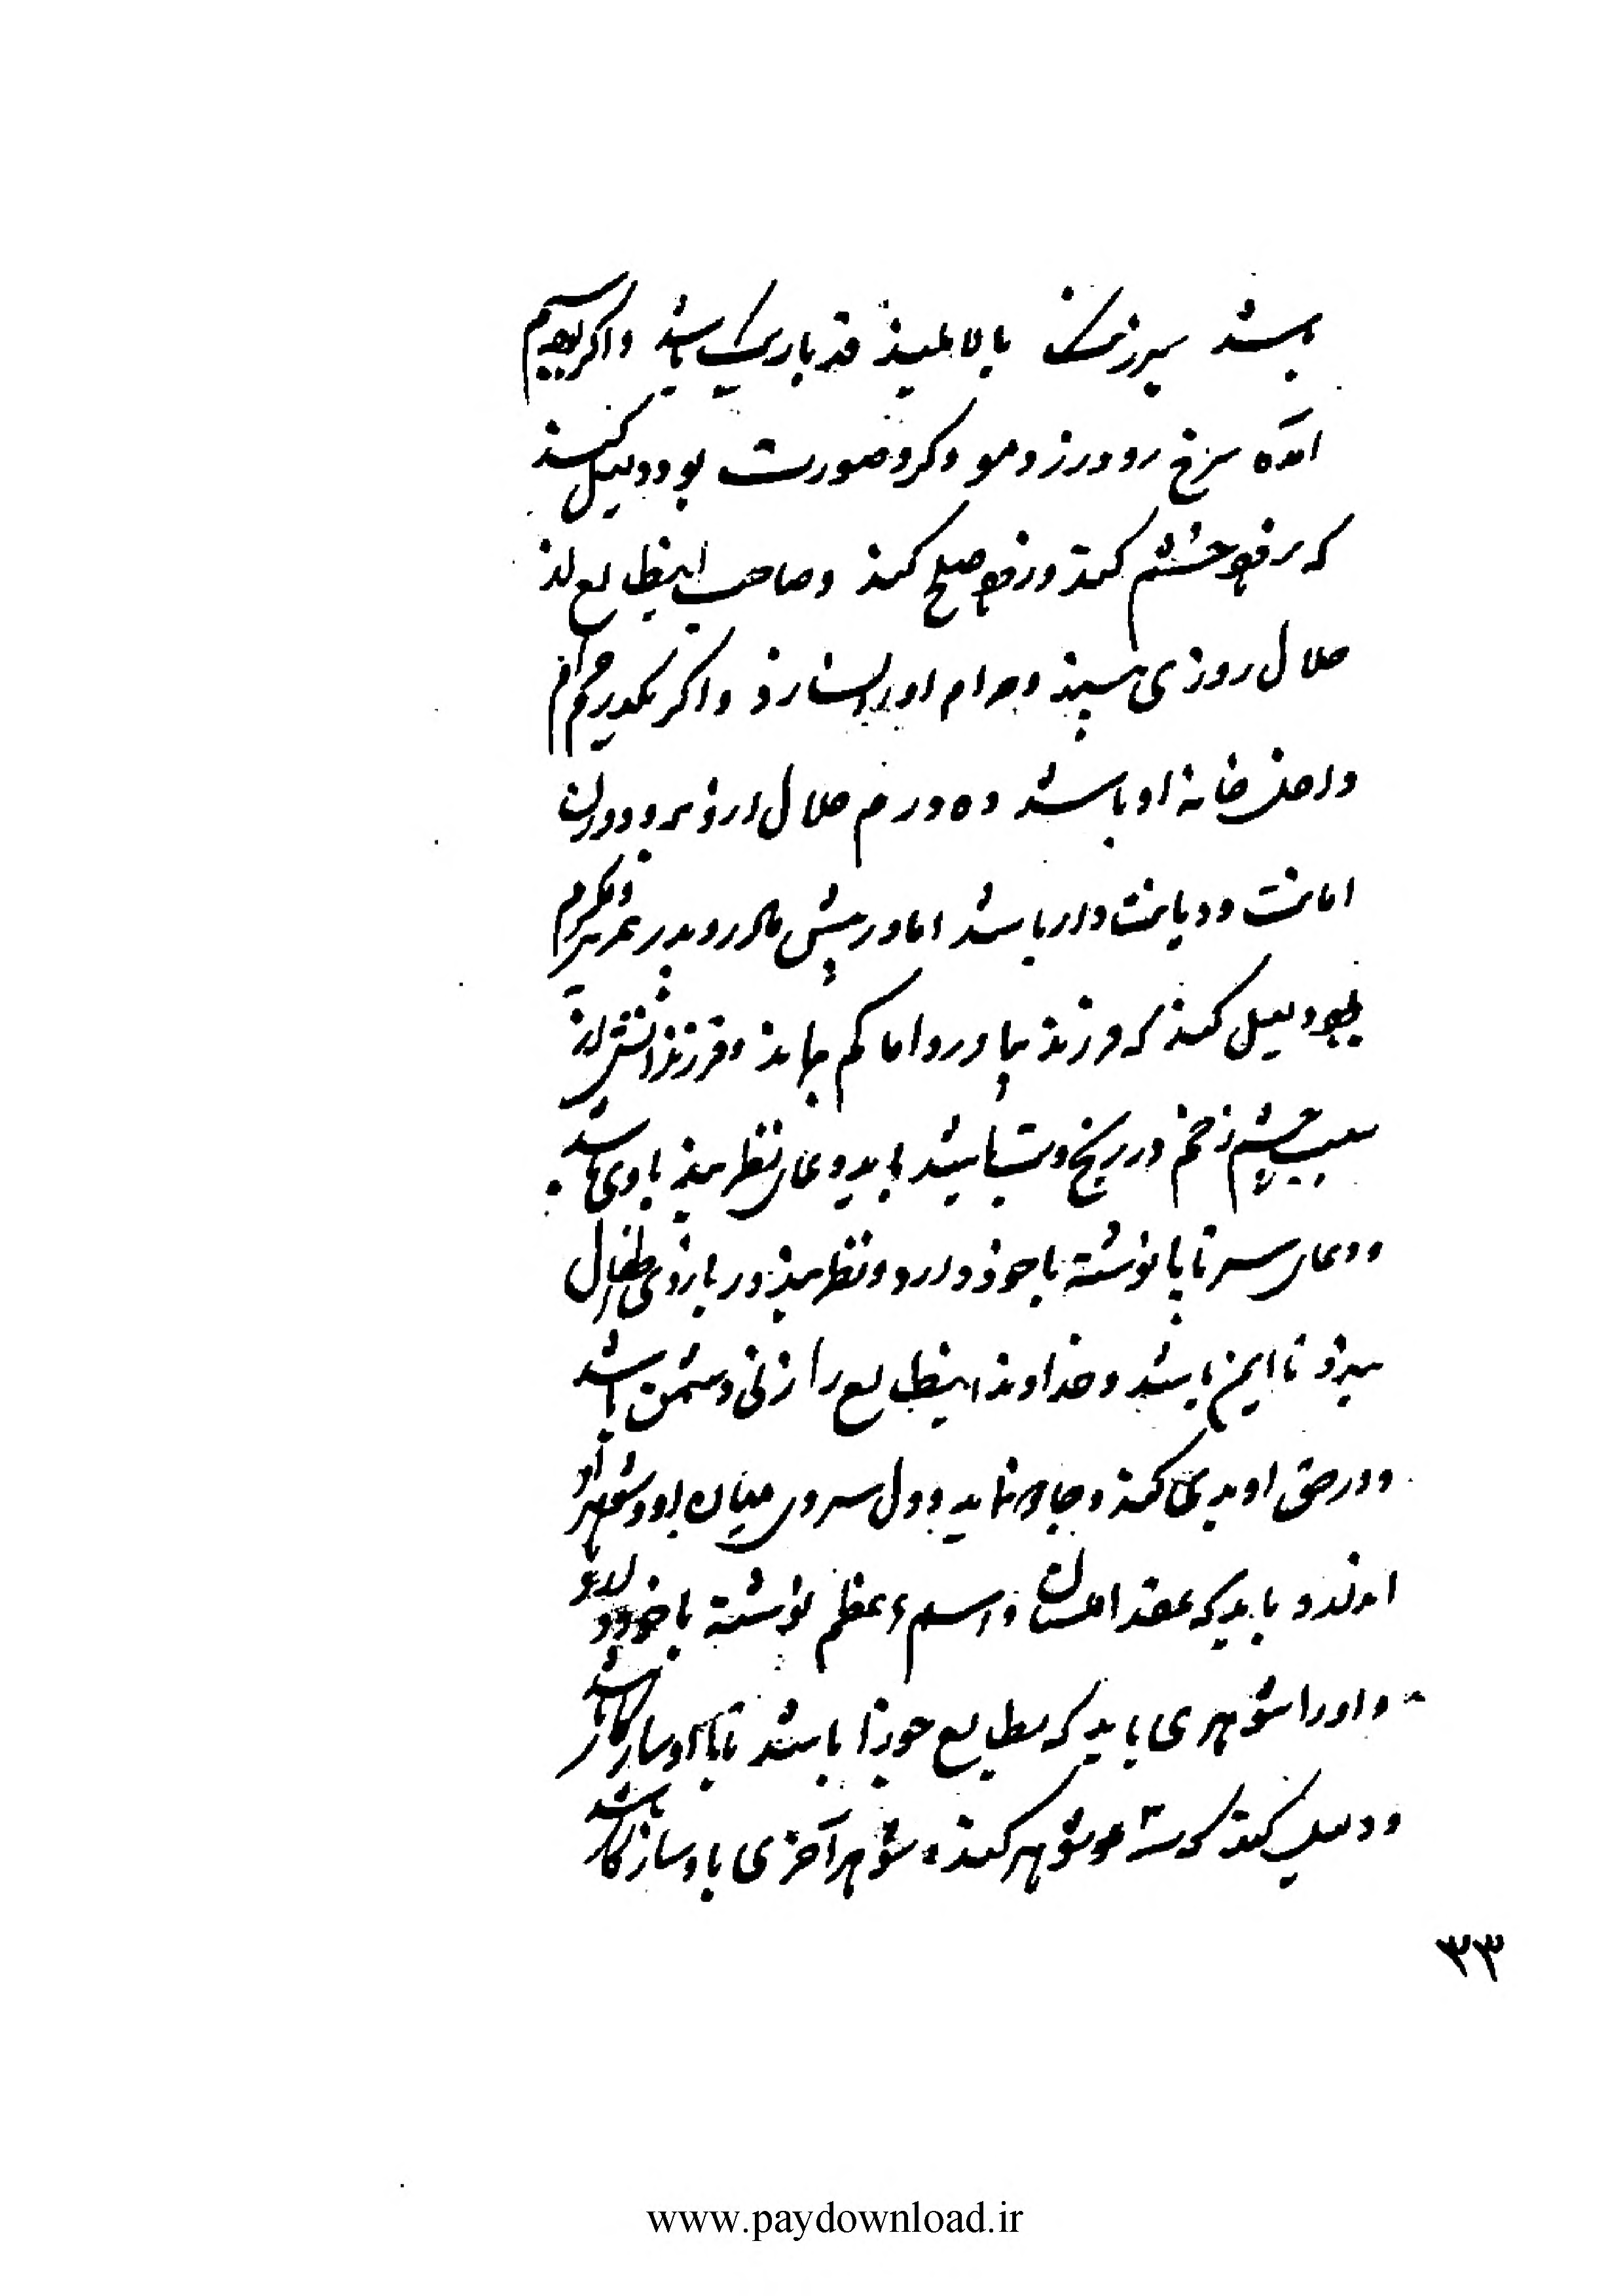 باشد سپرزنک بالا بلند قد باریک باشد واکر بوجه
امده سرخ رو ودرزومو وکرد صورت بود دلیل کند
که برفور خشم کند ودرفور صلح کند وصاحب اینطالع از
حلال روزی بیند وحرام اورا نسازد واکر یکدرم حرام
داخل خانه او باشد ده درم حلال ازو برود ودر ان
امانت ودیانت دار باشد اما در پیش مادر وپدر عزیز ومکرم
بود دلیل کند که فرزند بیاورد اما کم بماند وفرزندانش از
سبب چشم زخم در رنج وتب باشد باید دعای نظر بند با وی باشد
ودعای سر تا پا نوشته با خود دارد ونظر بند در بازوی اطفال
بندد تا ایمن باشد وخداوند اینطالع را زنی دشمن باشد
ودر حق او بدی کند وجادو نماید ودل سردی میان او وشوهر
اندازد باید که عقد اللسان واسم اعظم نوشته با خود دارد
واورا شوهری باید که بطالع جوزا باشد تا با او سازکار باشد
ودلیل کند که سه شوهر کند شوهر آخری با وسازکار باشد
۳۳
www.paydownload.ir